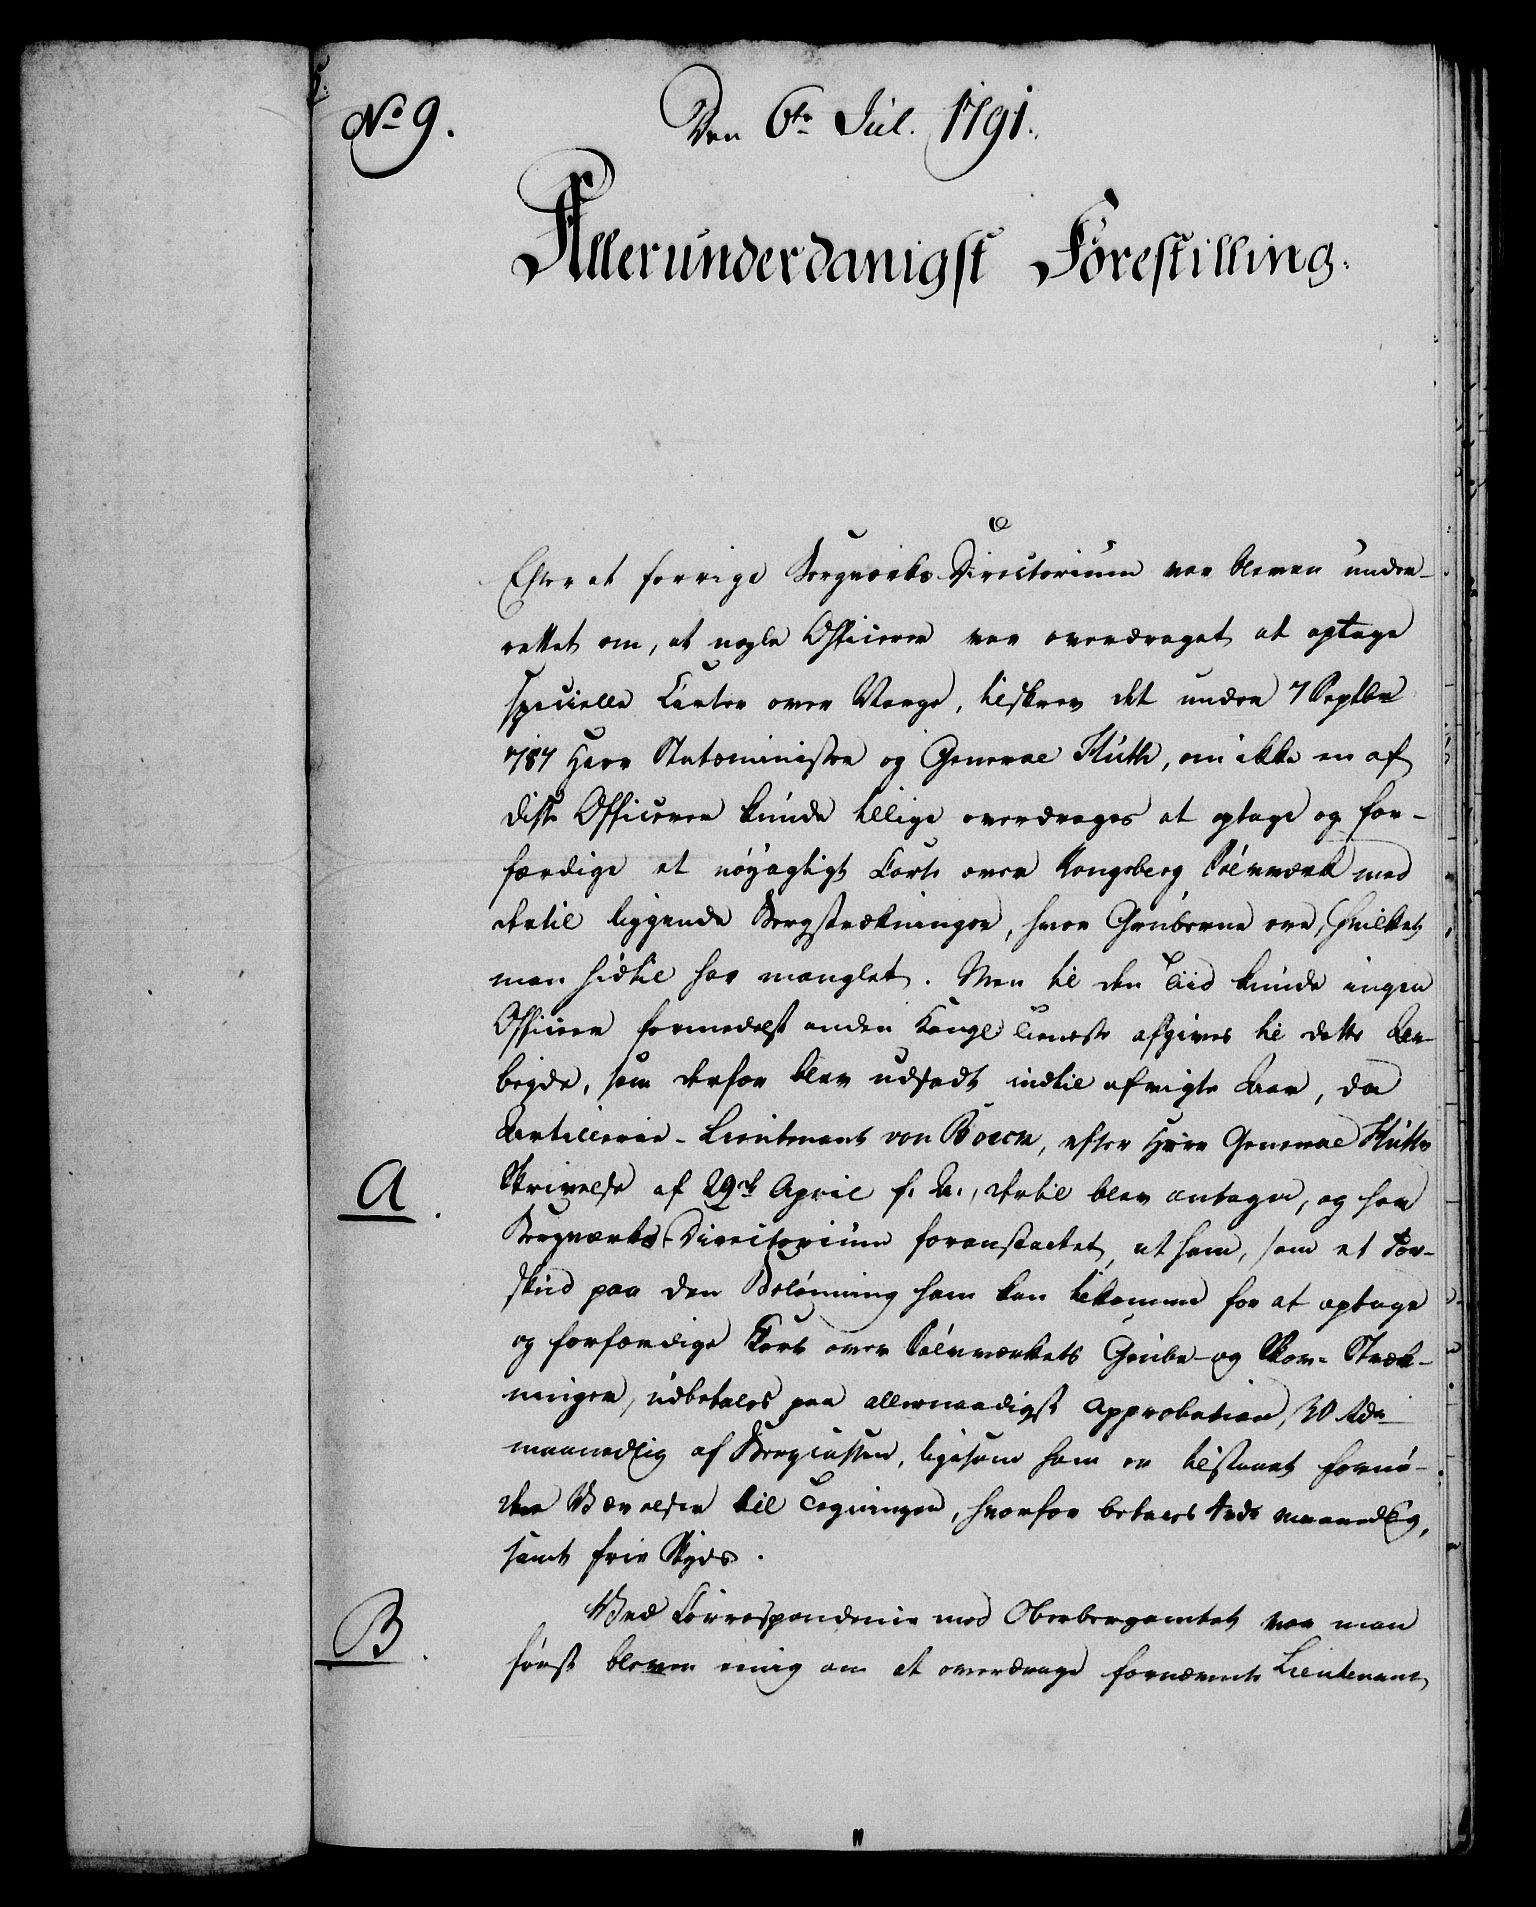 No 9.
Den 6te Jul. 1791.
Allerunderdanigst Forestilling.
Efter at forrige Bergværks-Directorium var bleven under-
rettet om, at nogle Officerer var overdraget at optage
specielle Carter over Norge, tilskrev det under 7 Septbr
787 Herr Statsminister og General Huth, om ikke en af
disse Officerer kunde tillige overdrages at optage og for-
færdige et nøyagtigt Cart over Kongsberg Sølvværk med
dertil liggende Bergstrækninger, hvor Gruberne ere, hvilket
man hidtil har manglet. Men til den Tiid kunde ingen
Officer formedelst anden Kongl Tieneste afgives til dette Ar-
beyde, som derfor blev udsadt indtil afvigte Aar, da
Artillerie-Lieutenant von Boeck, efter Herr General Huths
Skrivelse af 29de April f. A., dertil blev antagen, og har
A.
Bergværks-Directorium foranstaltet, at ham, som et For-
skud paa den Belønning ham kan tilkomme for at optage
og forfærdige Kort over Sølvværkets Grube- og Skov-Stræk-
ninger, udbetales paa allernaadigst Approbation, 30 Rdr
maanedlig af Bergcassen, ligesom ham er tilstaaet fornø-
den Værelser til Tegninger, hvorfor betales 4 rdr maanedlig,
samt frie Skyds.
B.
Ved Correspondence med Oberbergamtet var man
først bleven enig om at overdrage fornævnte Lieutenant